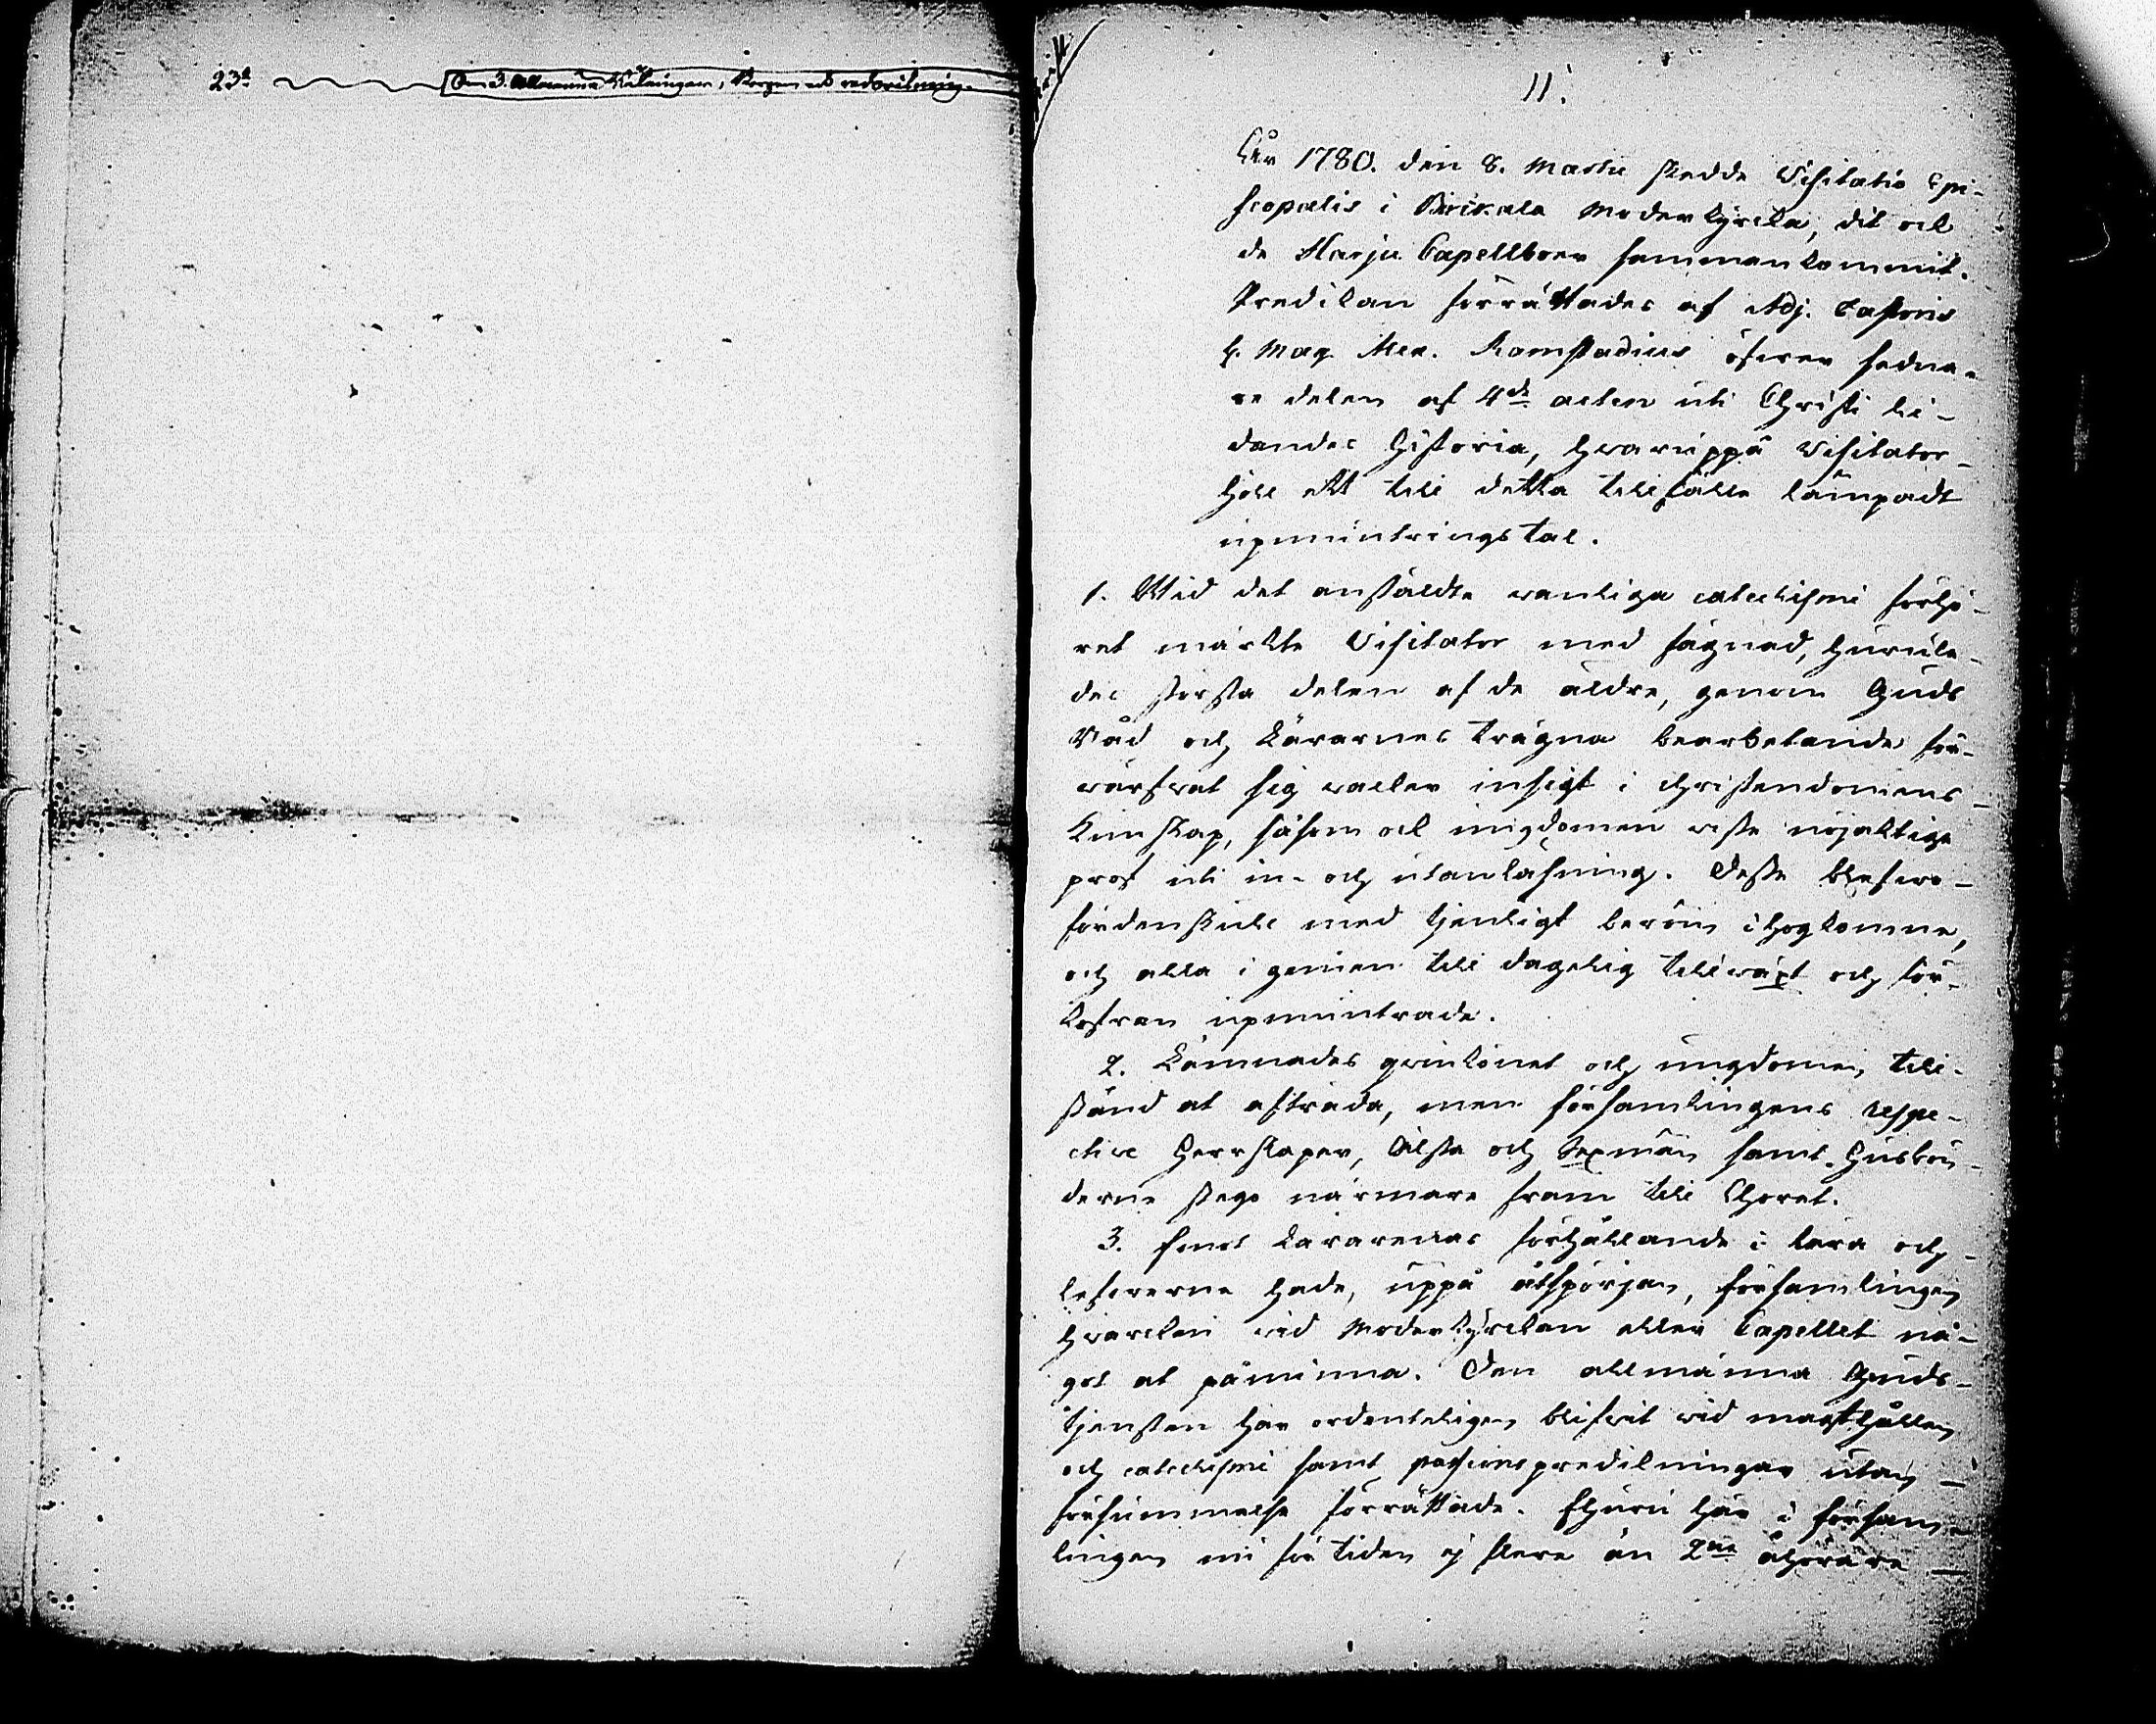 23:
Om 3. Allmänna
11.
År 1780. den 8. Martii skedde Visitatio Epi-
scopalis i Birkala Moderkyrcka, dit ock
de Harju Capellboer sammankommit.
Predikan förrättades af Adj. Pastoris
H. Mag. Alex. Ramstadius öfwer sedna-
re delen af 4de acten uti Christi li-
dandes historia, hwaruppå Visitator
höll ett till detta tillfälle lämpadt
upmuntrings tal.
1. Wid det anstäldta wanliga catechismi förhö-
ret märkte Visitator med fägnad, hurule-
des största delen af de äldre, genom Guds
Nåd och Lärarnes trägna bearbetande för-
wärfwat sig wacker insigt i christendomens
kunskap, såsom ock ungdomen wiste nöjaktiga
prof uti in- och utanläsning. Desse blefwo
fördenskull med tjenligt beröm ihogkomne,
och alla i gemen till dagelig tillwäxt och för-
kofran upmuntrade.
2. Lämnades qwinkönet och ungdomen till-
stånd at afträda, men församlingens respe-
ctive Herrskaper, Älste och Sexmän samt Husbön-
derne stego närmare fram till Choret.
3. Emot Lärarenas förhållande i lära och
lefwerne hade, uppå åtspörjan, församlingen
hwarcken wid Moderkyrckan eller Capellet nå-
got at påminna. Den allmänna Guds-
tjensten har ordenteligen blifwit wid macthållen
och catechismi samt passions predikningar utan
försummelse förrättade. Ehuru här i försam-
lingen nu för tiden ej flere än 2ne åhörare